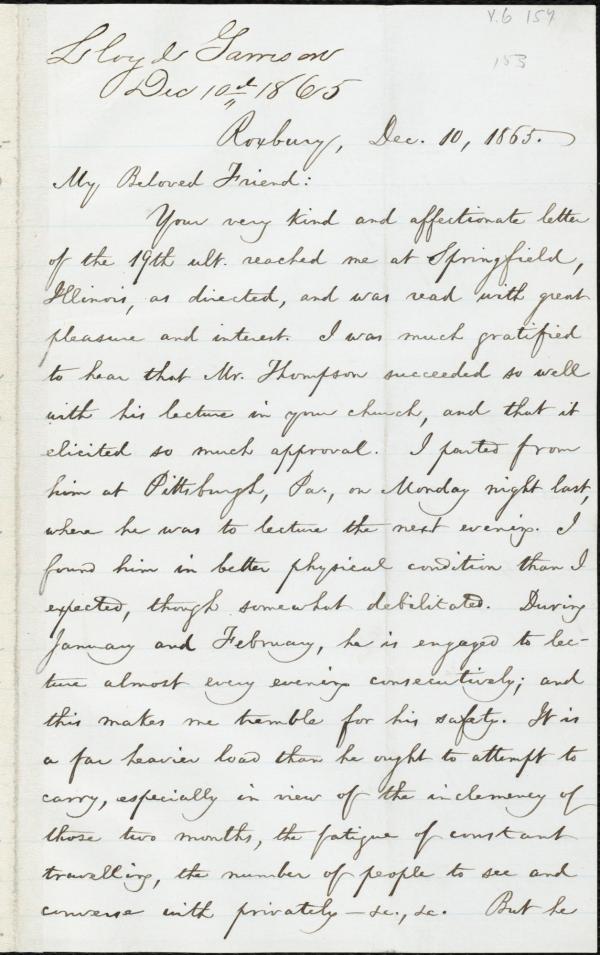 V.6 154
153
Lloyd Garrison
Dec 10th 1865
Roxbury, Dec. 10, 1865.
My Beloved Friend:
Your very kind and affectionate letter
of the 19th ult. reached me at Springfield,
Illinois, as directed, and was read with great
pleasure and interest. I was much gratified
to hear that Mr. Thompson succeeded so well
with his lecture in your church, and that it
elicited so much approval. I parted from
him at Pittsburgh, Pa., on Monday night last,
where he was to lecture the next evening. I
found him in better physical condition than I
expected, though somewhat debilitated. During
January and February, he is engaged to lec-
ture almost every evening consecutively; and
this makes me tremble for his safety. It is
a far heavier load than he ought to attempt to
carry, especially in view of the inclemency of
those two months, the fatigue of constant
travelling, the number of people to see and
converse with privately—&c., &c. But he